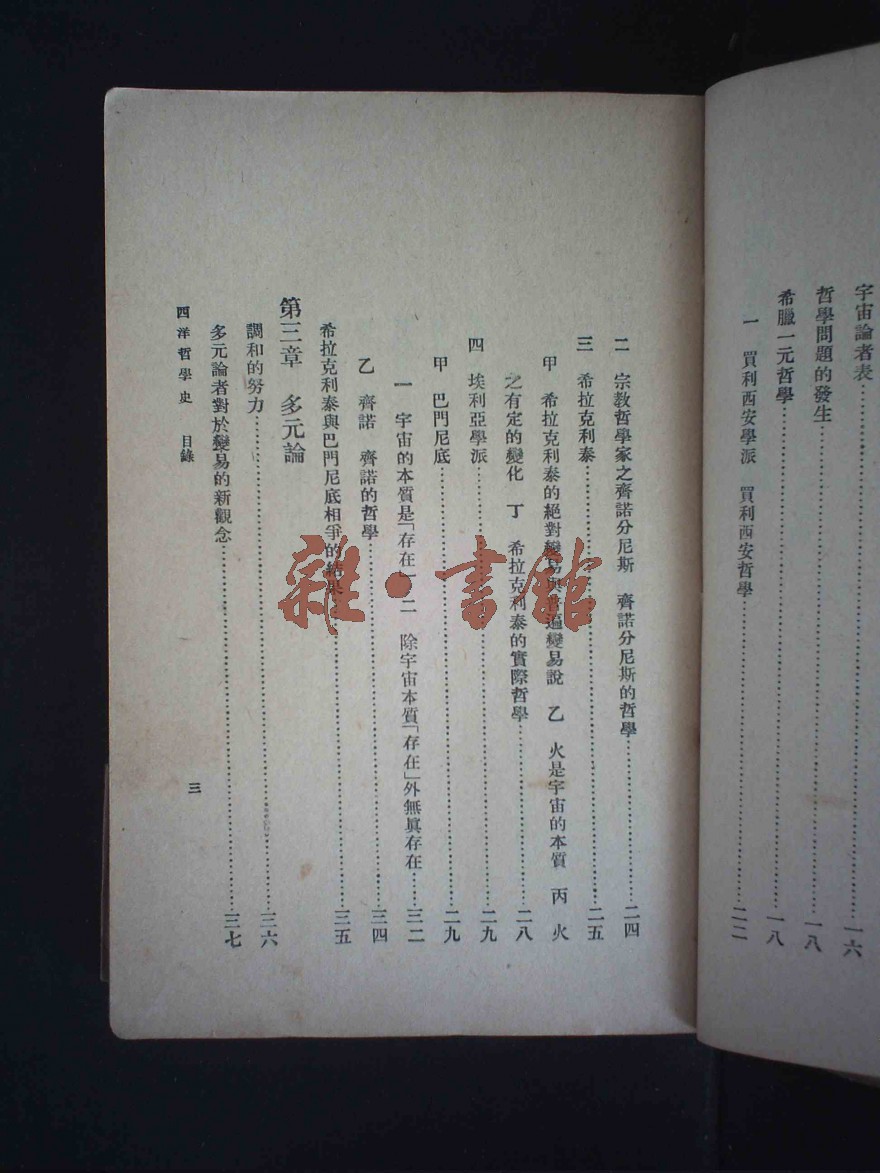 宇宙論者表……一六
哲學問題的發生……一八
希臘一元哲學……一八
一　買利西安學派　買利西安哲學……二二
二　宗教哲學家之齊諾分尼斯　齊諾分尼斯的哲學……二四
三　希拉克利泰……二五
甲　希拉克利泰的絕對變易與普遍變易說　乙　火是宇宙的本質　丙　火
之有定的變化　丁　希拉克利泰的實際哲學……二八
四　埃利亞學派……二九
甲　巴門尼底……二九
一　宇宙的本質是「存在」　二　除宇宙本質「存在」外無眞存在……三二
乙　齊諾　齊諾的哲學……三四
希拉克利泰與巴門尼底相爭的結果……三五
第三章　多元論
調和的努力……三六
多元論者對於變易的新觀念……三七
西洋哲學史　目錄
三
雜·書館